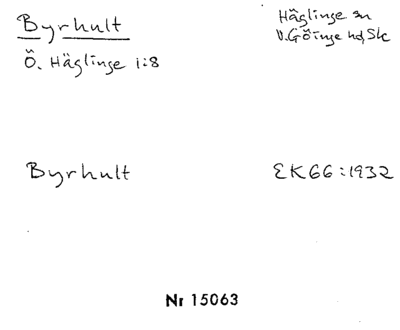 Byrhult
Häglinge sn
Ö. Häglinge 1:8
V. Göinge hd, Sk
Byrhult
EK66:1932
Nr 15063